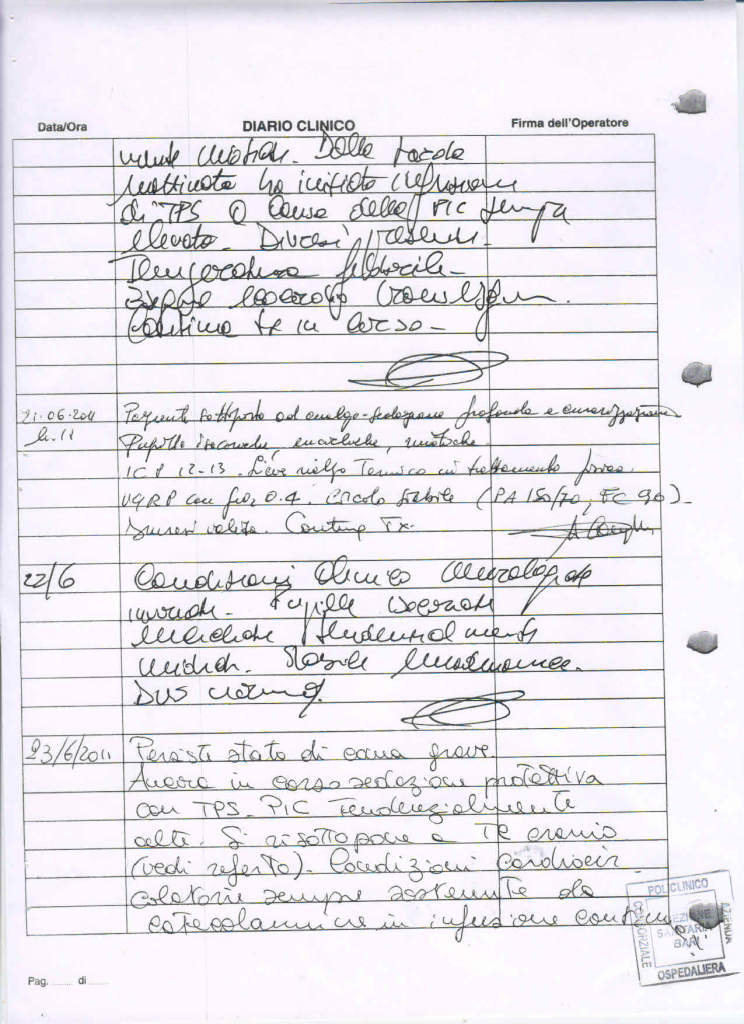 Data/Ora DIARIO CLINICO Firma dell'Operatore
miotiche. Dalla tarda
mattinata ha iniziato infusione
di TPS a causa della PIC sempre
elevata. Diuresi presente.
Temperatura febbrile.
Continua tx in corso.
21-06-2011 Paziente sottoposto ad analgo-sedazione profonda e curarizzazione
h. 11 Pupille isocoriche, miotiche.
ICP 12-13. Lieve rialzo termico in trattamento fisico.
VGRP con fio2 0.4. Circolo stabile (PA 150/70, FC 90).
Diuresi valida. Continua Tx.
22/6 Condizioni clinico neurologiche
invariate. Pupille isocoriche
tendenzialmente
midriatiche. Stabile
23/6/2011 Persiste stato di coma grave.
Ancora in corso sedazione protettiva
con TPS. PIC tendenzialmente
alte. Si risottopone a TC cranio
(vedi referto). Condizioni cardiocir-
colatorie sempre sostenute da
catecolamine in infusione continua
POLICLINICO
CONSORZIALE
AZIENDA
SEZIONE
SANITARIA
BARI
OSPEDALIERA
Pag. ........ di ........